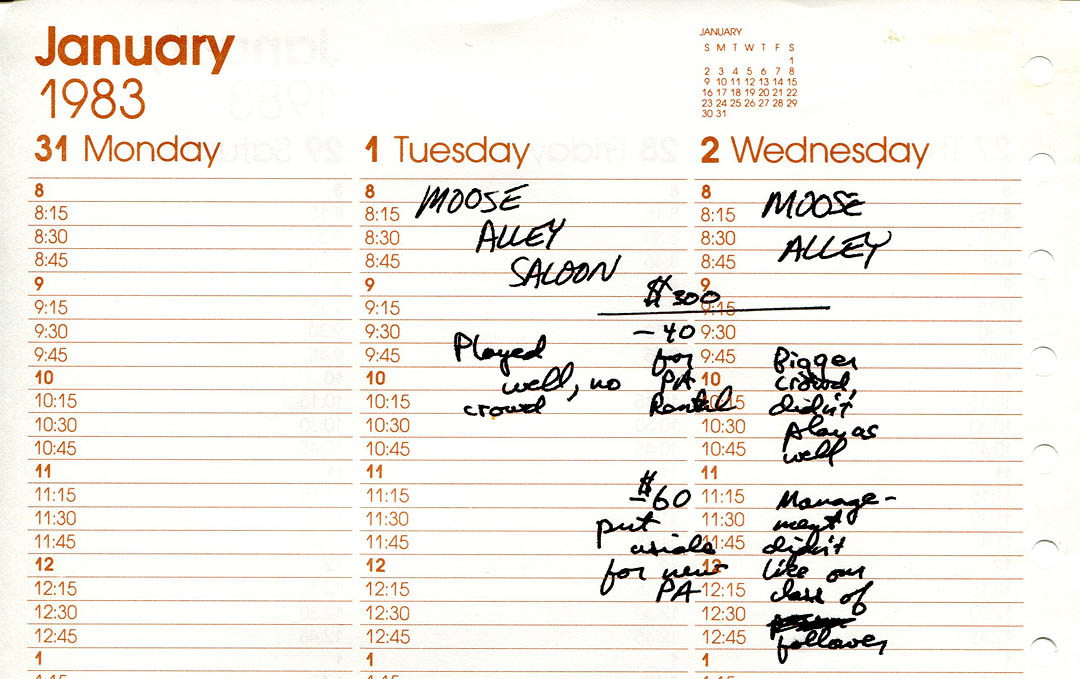 January
1983
JANUARY
S M T W T F S
1
2 3 4 5 6 7 8
9 10 11 12 13 14 15
16 17 18 19 20 21 22
23 24 25 26 27 28 29
30 31
31 Monday
8
8:15
8:30
8:45
9
9:15
9:30
9:45
10
10:15
10:30
10:45
11
11:15
11:30
11:45
12
12:15
12:30
12:45
1
1 Tuesday
8
8:15
8:30
8:45
9
9:15
9:30
9:45
10
10:15
10:30
10:45
11
11:15
11:30
11:45
12
12:15
12:30
12:45
1
MOOSE
ALLEY
SALOON
Played
well, no
crowd
$300
-40
for
PA
Rental
$
-60
put
aside
for new
PA
2 Wednesday
8
8:15
8:30
8:45
9
9:15
9:30
9:45
10
10:15
10:30
10:45
11
11:15
11:30
11:45
12
12:15
12:30
12:45
1
MOOSE
ALLEY
Bigger
crowd,
didn't
play as
well
Manage-
ment
didn't
like our
class of
follower